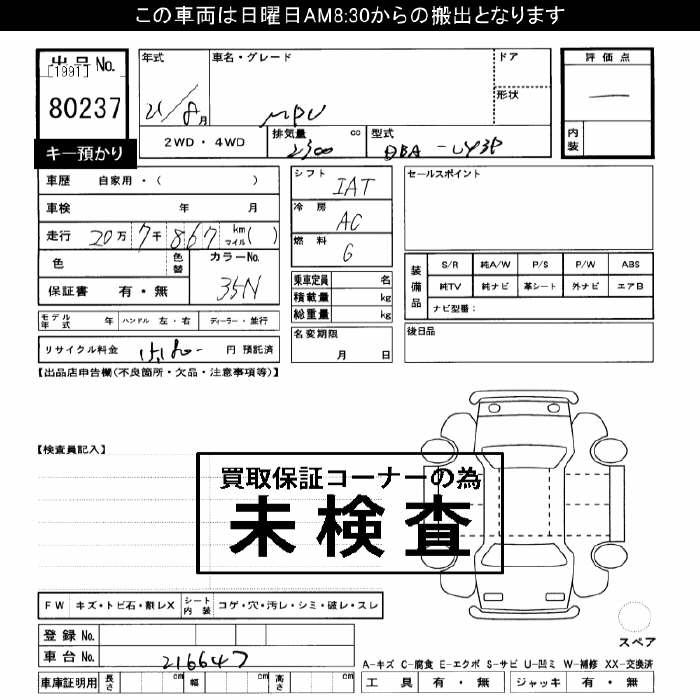 この車両は日曜日AM8:30からの搬出となります
出品No.
[1991]
80237
キー預かり
年式
21/8月
車名・グレード
MPV
ドア
形状
2WD・4WD
排気量 cc
2300
型式
DBA-LY3P
評価点
内装
車歴 自家用・( )
車検 年 月
走行 20万7千867 km マイル( )
色
色替
カラーNo.
35N
保証書 有・無
シフト
IAT
冷房
AC
燃料
G
乗車定員 名
積載量 kg
総重量 kg
セールスポイント
装備品
S/R 純A/W P/S P/W ABS
純TV 純ナビ 革シート 外ナビ エアB
ナビ型番:
モデル年式 年 ハンドル 左・右 ディーラー・並行
リサイクル料金 15,180- 円 預託済
名変期限
月 日
後日品
【出品店申告欄(不良箇所・欠品・注意事項等)】
【検査員記入】
買取保証コーナーの為
未検査
FW キズ・トビ石・割レX シート内装 コゲ・穴・汚レ・シミ・破レ・スレ
登録No.
車台No. 216647
車庫証明用 長さ cm 幅 cm 高さ cm
スペア
A-キズ C-腐食 E-エクボ S-サビ U-凹ミ W-補修 XX-交換済
工具 有・無 ジャッキ 有・無